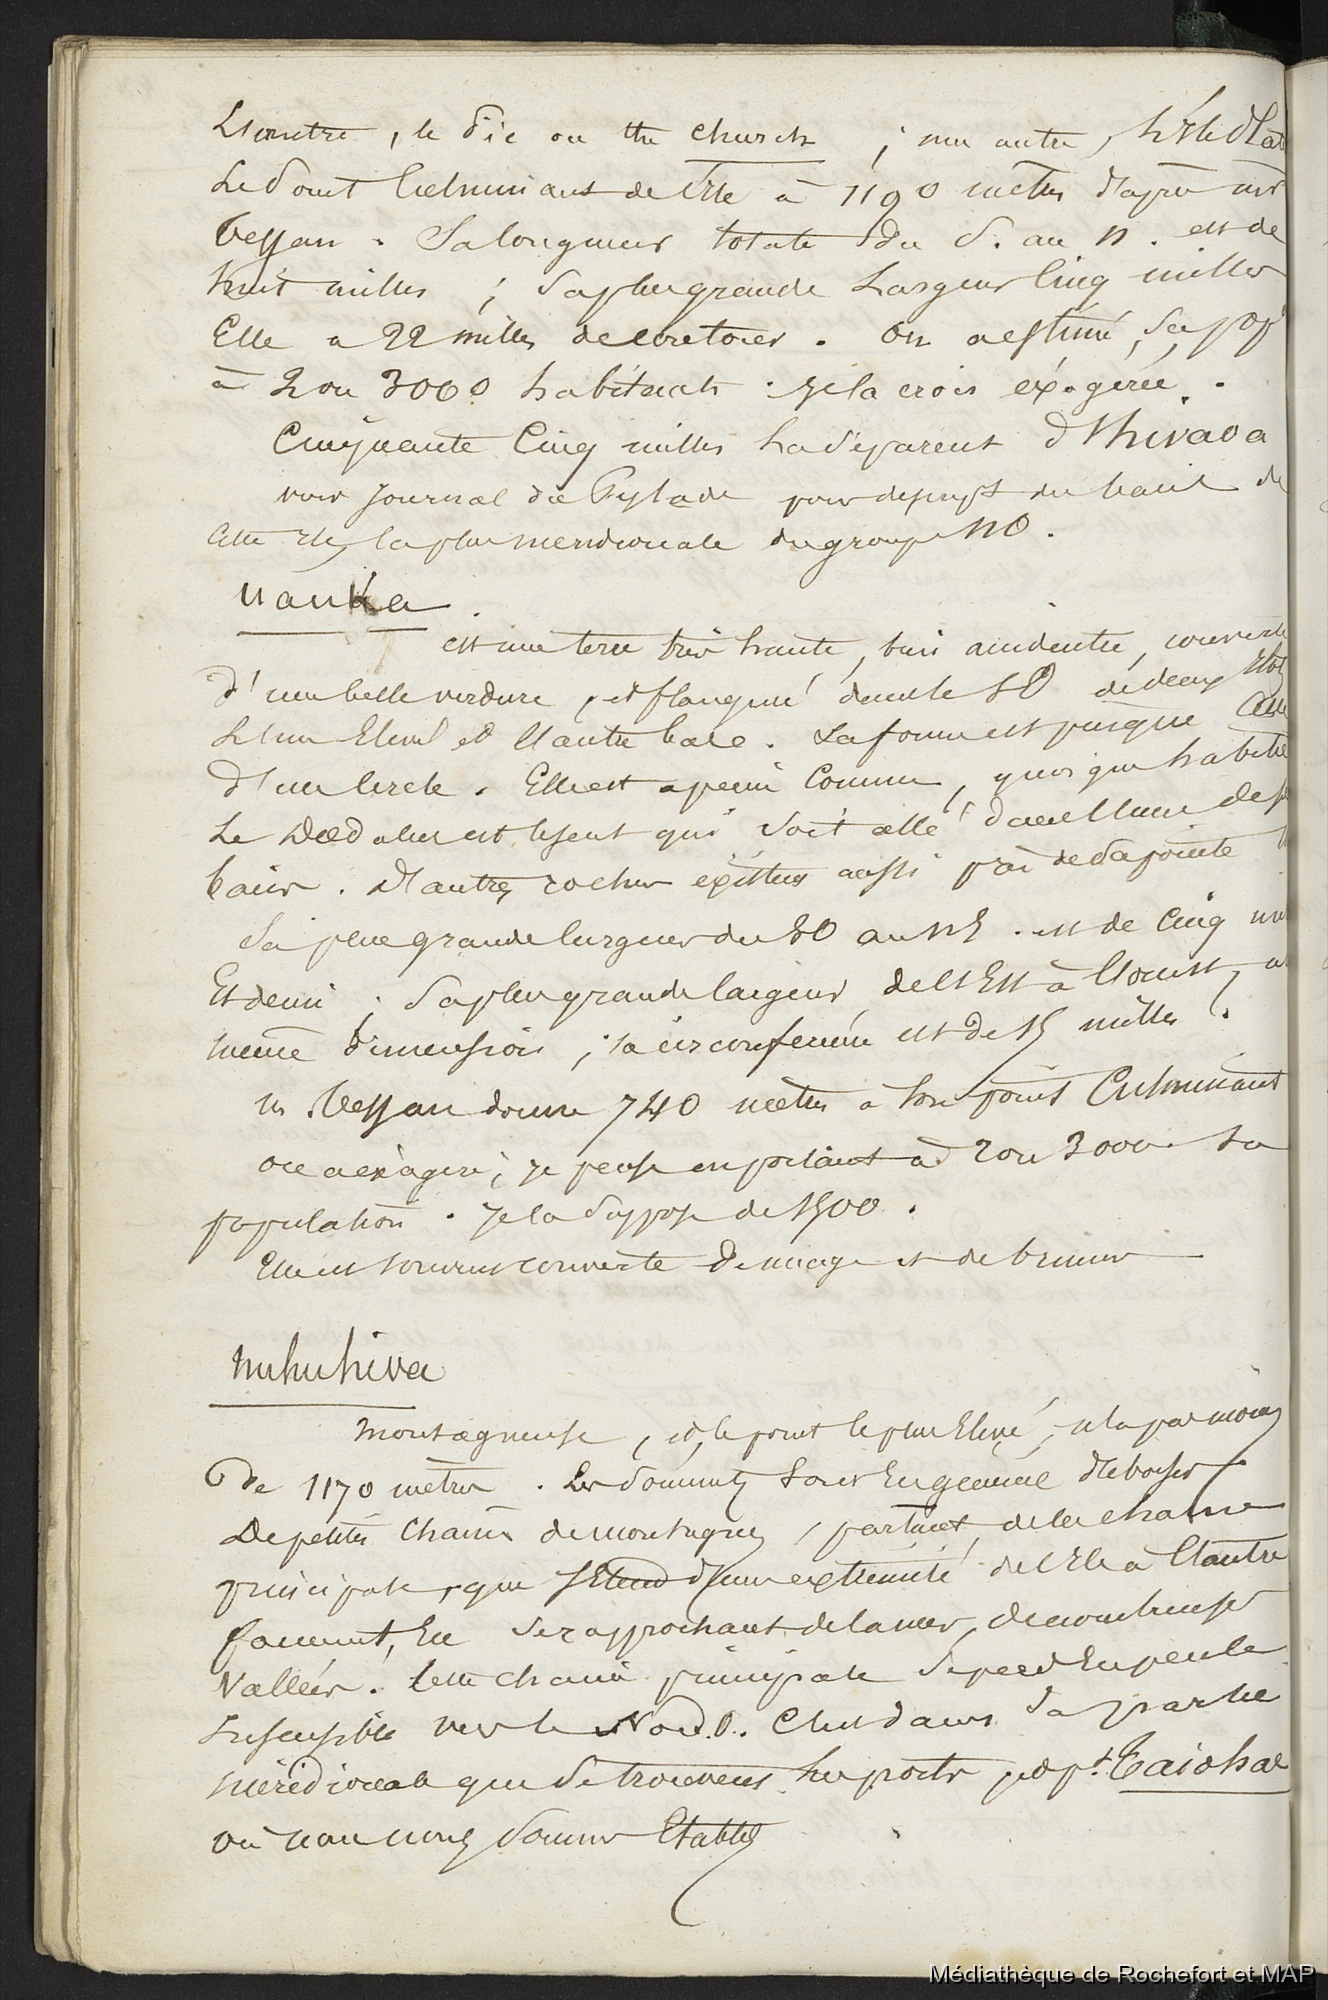 L'Isontre, le Pic ou the church ; une autre, l'Ile Plate
Le Point culminant de l'Ile a 1190 mètres d'après mr
Tessan. Sa longueur totale du S. au N. est de
huit milles ; sa plus grande Largeur Cinq milles
Elle a 22 milles de contour. On a estimé sa pop
à 2 ou 3000 habitants. Je la crois éxagérée.
Cinquante Cinq milles la séparent d'Hivaoa
voir Journal du Pylade pour descript du havre de
Cette Ile, la plus meridionale du groupe NO.
Uauka.
est une terre très haute, très accidentée, couverte
d'une belle verdure, et flanquée dans le SO de deux Ilots
L'un Elevé et l'autre bas. La forme est presque Celle
d'un Cercle. Elle est a peine Connue, quoique habitée
Le Dædalus est le seul qui soit allé dans l'une de ses
baies. D'autres rochers éxistent aussi près de sa pointe
Sa plus grande longueur du SO au NE. est de Cinq mi
Et demi ; Sa plus grande largeur, de l'Est à l'ouest, a
même dimension ; sa circonference est de 15 milles.
M. Tessan donne 740 mètres a son point Culminant
on a exagéré, je pense en portant a 2 ou 3000 sa
population. Je la suppose de 1500.
Elle est souvent couverte de nuages et de brume
Nukuhiva
Montagneuse, et le point le plus Elevé, n'a pas moins
de 1170 mètres. Les sommets sont En général déboisés
De petites Chaines de montagnes, partant de la chaine
principale, qui s'Etend d'une extrémité de l'Ile à l'autre
forment, En se rapprochant de la mer, de nombreuses
Vallées. Cette chaine principale se perd En pente
Insensible vers le Nord.O. C'est dans sa partie
méridionale que se trouvent les ports Taiohae
où nous nous sommes Etablis
Médiathèque de Rochefort et MAP